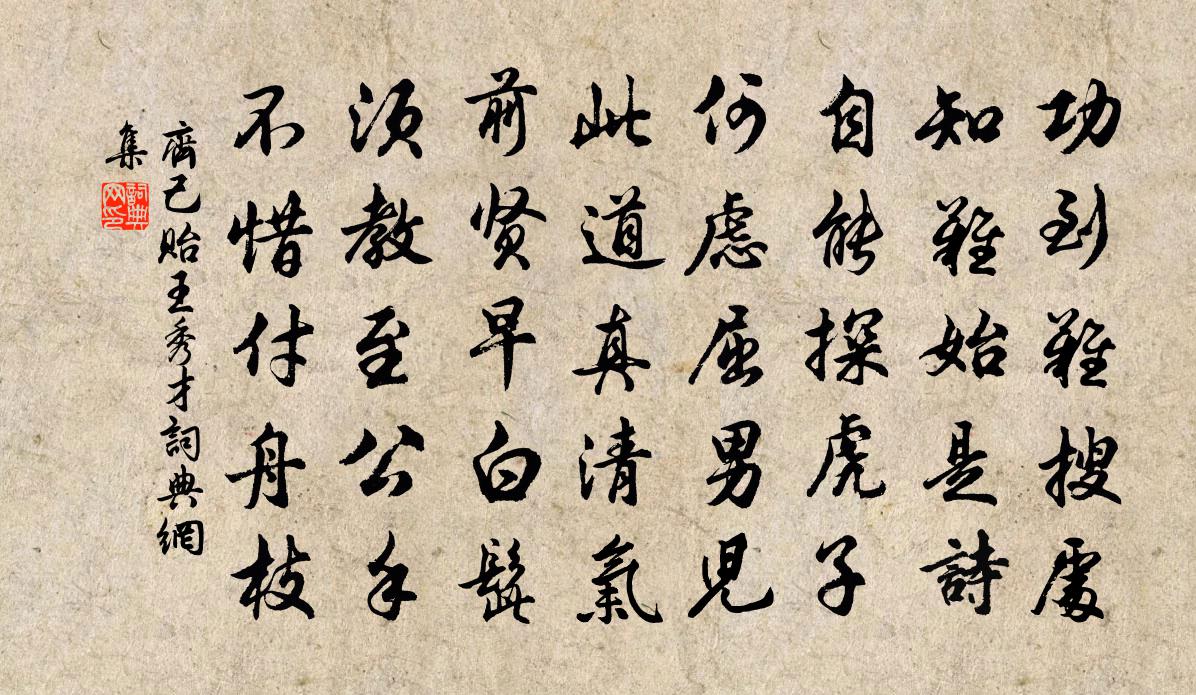 功到難搜處
知難始是詩
自能探虎子
何慮屈男兒
此道真清氣
前賢早白髭
須教至公手
不惜付舟枝
齊己貽王秀才詞典網
集
詞典
网印